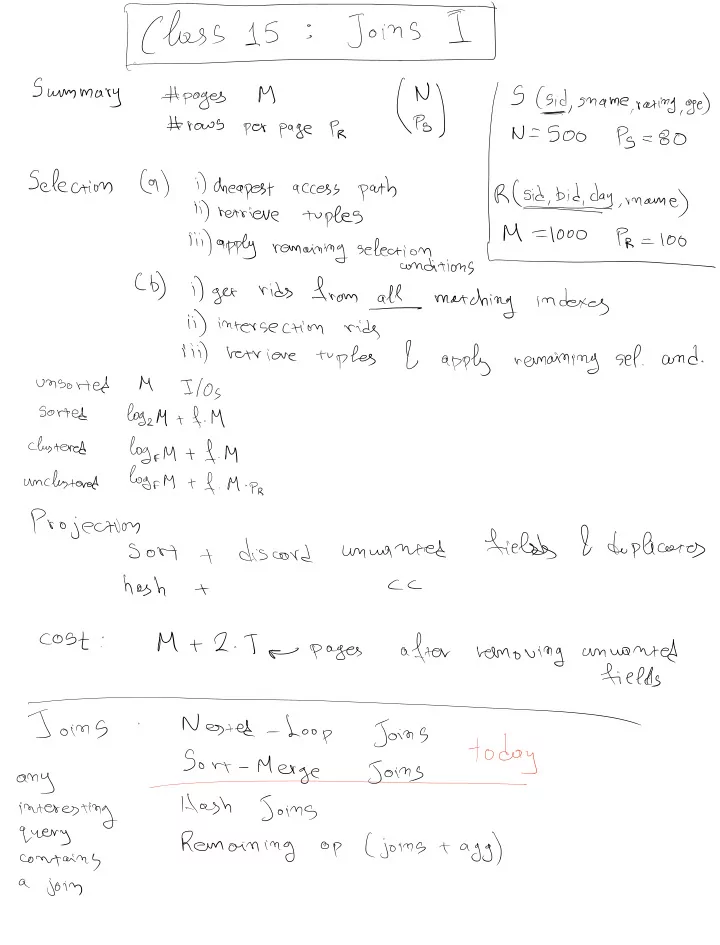 Class 15 : Joins I
Summary #pages M (N
#rows per page PR PS)
S (sid, sname, rating, age)
N = 500 PS = 80
R (sid, bid, day, rname)
M = 1000 PR = 100
Selection (a) i) cheapest access path
ii) retrieve tuples
iii) apply remaining selection
conditions
(b) i) get rids from all matching indexes
ii) intersection rids
iii) retrieve tuples & apply remaining sel. cond.
unsorted M I/Os
sorted log2M + f.M
clustered logFM + f.M
unclustered logFM + f.M.PR
Projection
sort + discard unwanted fields & duplicates
hash + CC
cost: M + 2.T ← pages after removing unwanted
fields
Joins : Nested-Loop Joins
Sort-Merge Joins
today
Hash Joins
Remaining op (joins + agg)
any
interesting
query
contains
a join